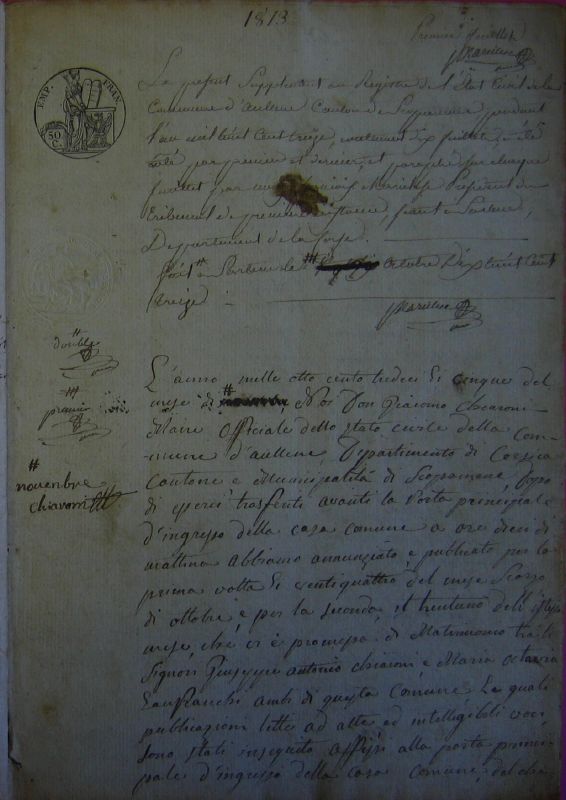 1813.
Premier feuillet
EMP. FRAN.
50 C.
Le présent Supplément au Registre de l'État Civil de la
Commune d'aullene Canton de pendant
l'an mil huit Cent treize, contenant dix feuillets, a été
coté par premier et dernier, et paraphé sur chaque
feuillet par Président du
Tribunal de première instance, séant à Sartene,
Département de la Corse.
fait à Sartene le # octobre Dixhuit Cent
treize
double
#
premier
L'anno mille otto cento tredeci li cinque del
mese di # Noi Don Giacomo Chiaroni
Maire Officiale dello stato civile della Com-
mune d'aullene, Dipartimento di Corsica
Cantone e Municipalità di Scopamene, dopo
di esserci trasferiti avanti la Porta principale
d'ingresso della casa comune a ore dieci di
mattina abbiamo annunziato, e publicato per la
prima volta li ventiquattro del mese scorso
di ottobre, e per la seconda, il trentuno dell'istesso
mese, che vi è promessa di Matrimonio tra li
Signori Giuseppe antonio Chiaroni, e Maria
Lanfranchi ambi di questa Comune. Le quali
publicazioni lette ad alta ed intelligibli voci
sono stati inseguito affissi alla porta princi-
pale d'ingresso della casa comune, del che
#
novembre
chiaroni